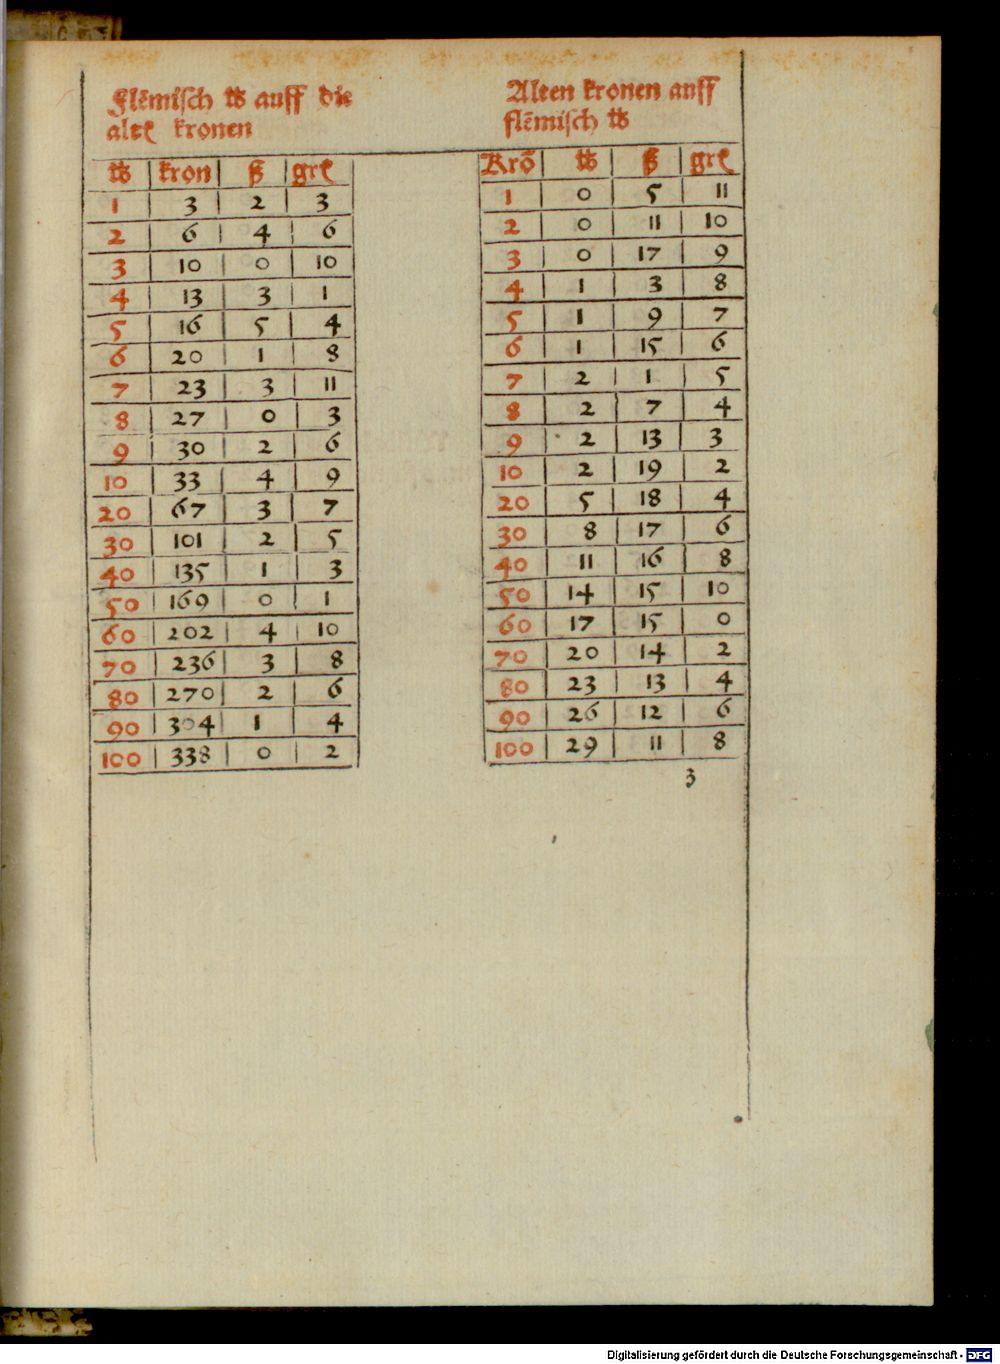 Flēmisch ℔ auff die
altꝭ kronen
℔ kron ß grꝭ
1 3 2 3
2 6 4 6
3 10 0 10
4 13 3 1
5 16 5 4
6 20 1 8
7 23 3 11
8 27 0 3
9 30 2 6
10 33 4 9
20 67 3 7
30 101 2 5
40 135 1 3
50 169 0 1
60 202 4 10
70 236 3 8
80 270 2 6
90 304 1 4
100 338 0 2
Alten kronen auff
flēmisch ℔
Krō ℔ ß grꝭ
1 0 5 11
2 0 11 10
3 0 17 9
4 1 3 8
5 1 9 7
6 1 15 6
7 2 1 5
8 2 7 4
9 2 13 3
10 2 19 2
20 5 18 4
30 8 17 6
40 11 16 8
50 14 15 10
60 17 15 0
70 20 14 2
80 23 13 4
90 26 12 6
100 29 11 8
3
Digitalisierung gefördert durch die Deutsche Forschungsgemeinschaft - DFG